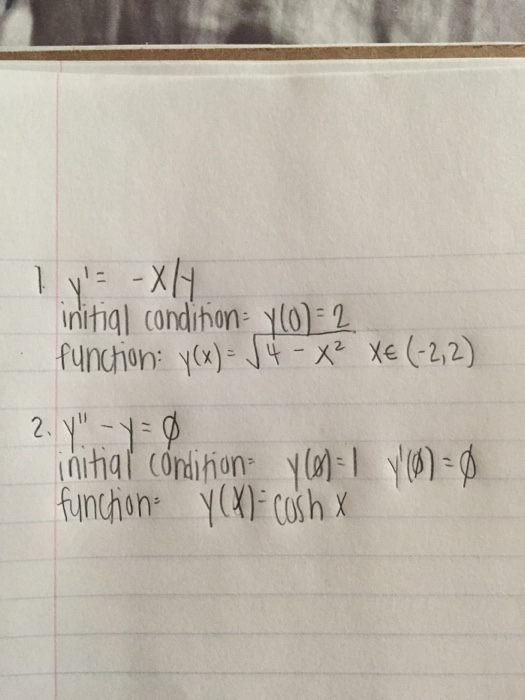 1. y' = -x/y
initial condition: y(0) = 2
function: y(x) = √4 - x² x∈ (-2,2)
2. y'' - y = Ø
initial condition: y(Ø) = 1 y'(Ø) = Ø
function: y(x) = cosh x